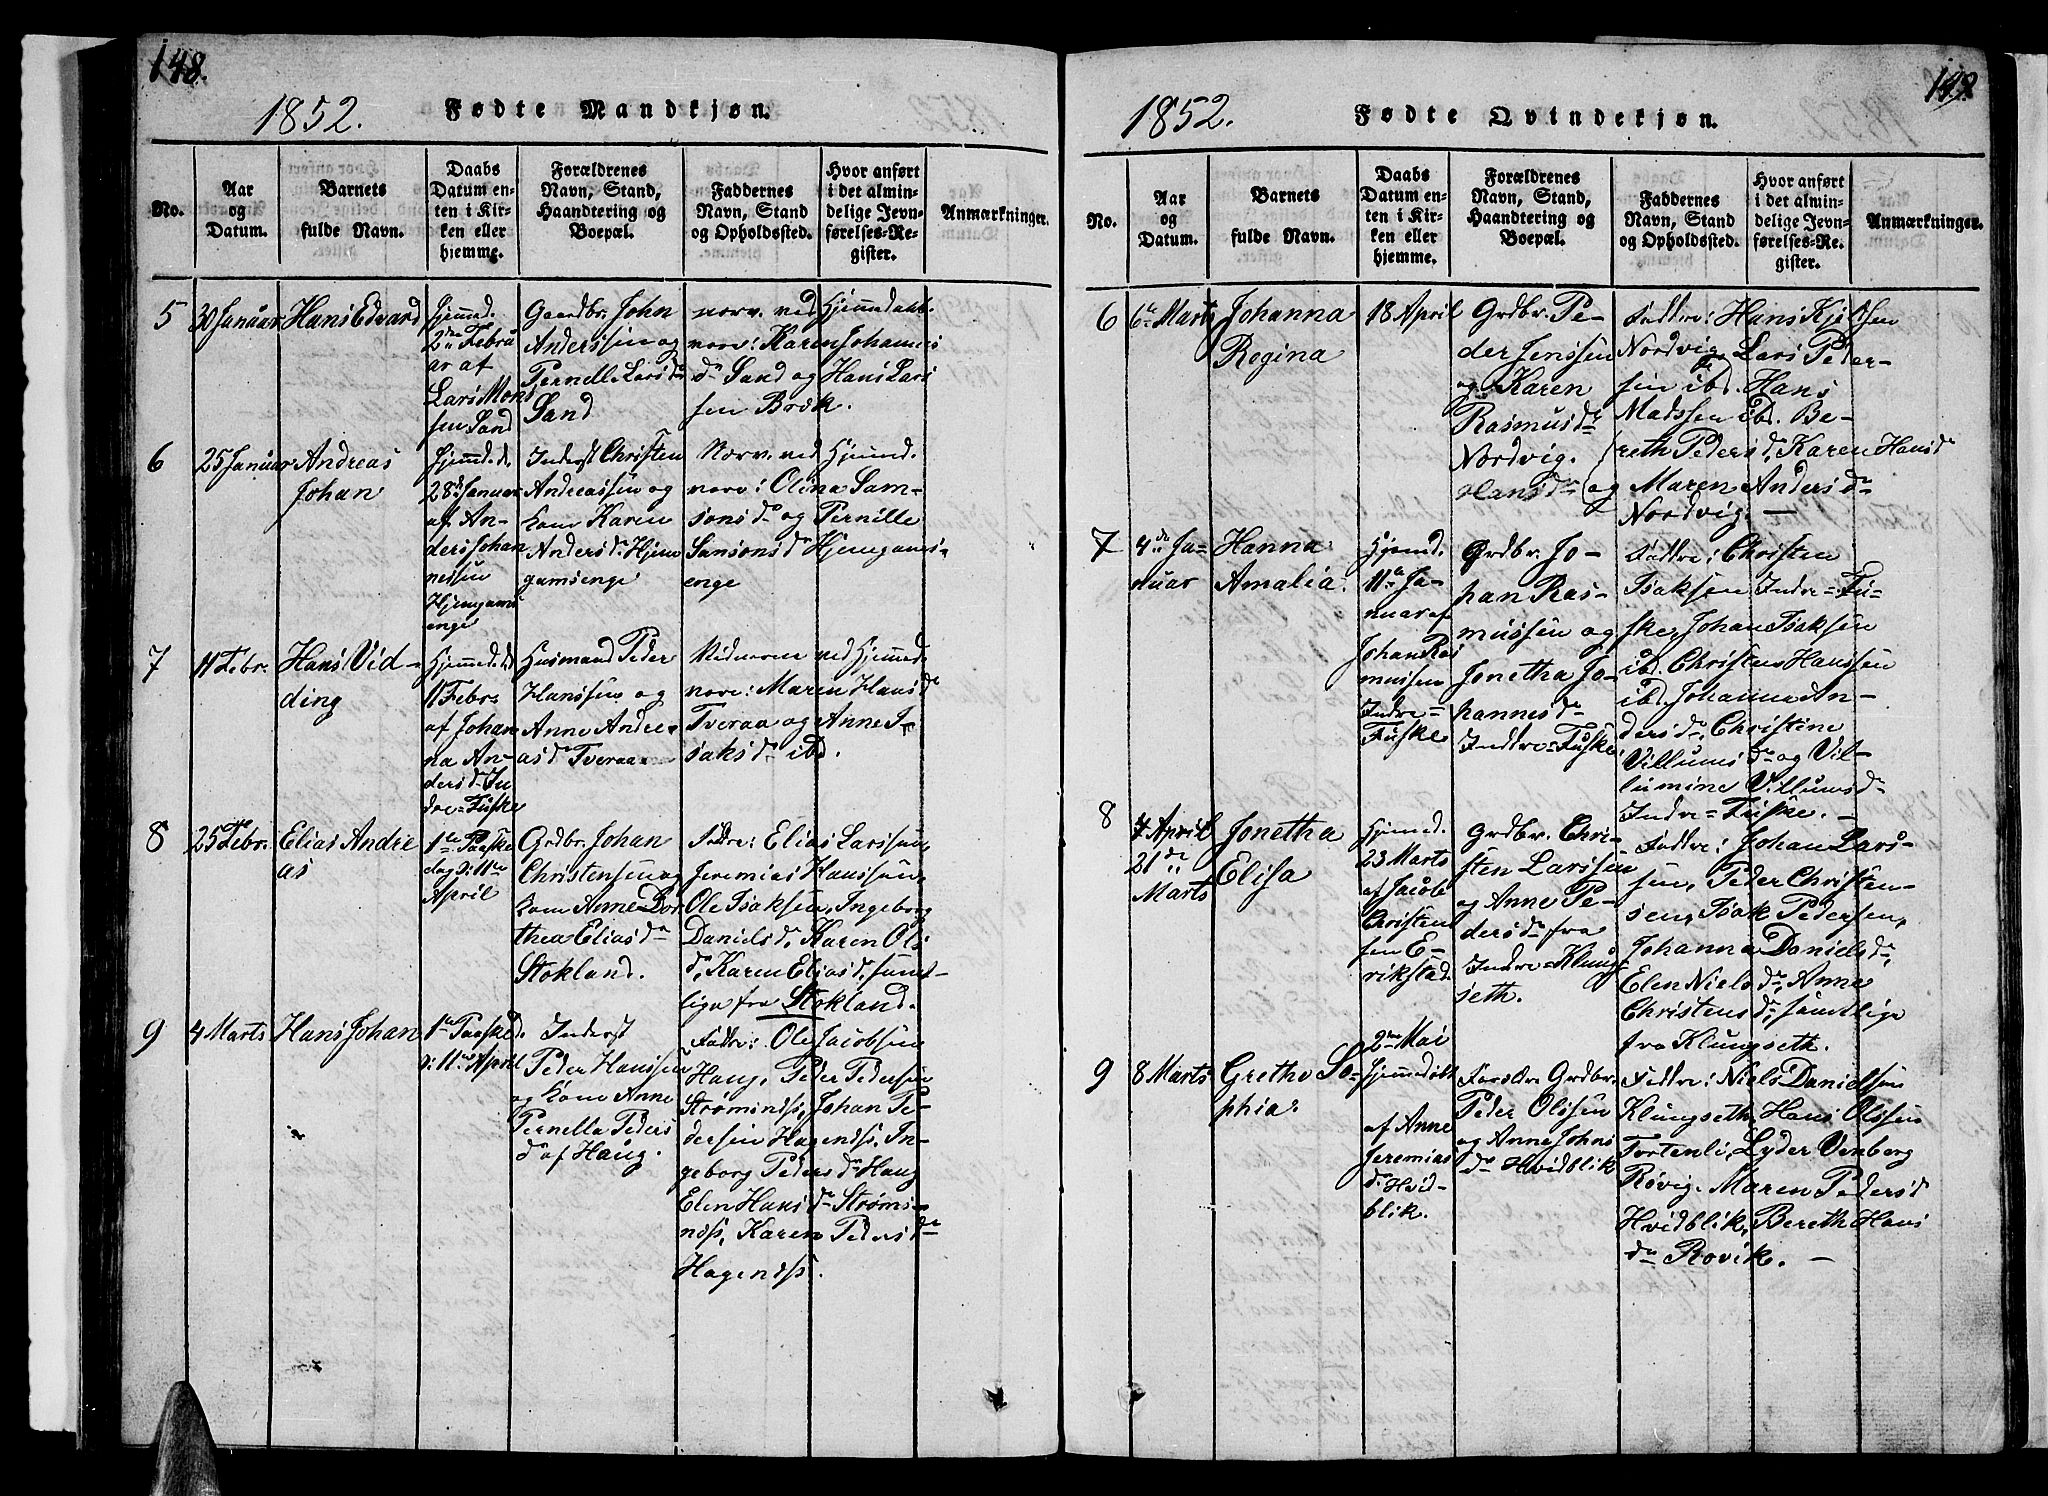 148.
1852.
Fødte Mandkjøn.
No.
Aar
og
Datum.
Barnets
fulde Navn.
Daabs
Datum en-
ten i Kir-
ken eller
hjemme.
Forældrenes
Navn, Stand,
Haandtering og
Boepæl.
Faddernes
Navn, Stand
og Opholdssted.
Hvor anført
i det almin-
delige Jevn-
førelses-Re-
gister.
Anmærkninger.
5
30 Januar
Hans Edvard
hjemmed.
2den Febru
ar af
Lars Mon
sen Sand
Gaardbr. John
Anderssen og
Pernell Larsd.
Sand
nærv. ved Hjemmedaab.
nære: Karen Johannes
d. Sand og Hans Lars
sen Bræk.
6
25 Januar
Andreas
Johan
hjemmed. d.
28de Januar
af An-
ders Johan
nessen
Hjemgams
enge
Inderst Christen
Andreassen og
Kone Karen
Andersd. Hjem
gamsenge
Nærv. ved Hjemmed.
nære: Olina Sam-
sonsd. og Pernille
Samsonsd. Hjemgams-
enge
7
11 Febr.
Hans Vid-
ding
Hjemmed. d.
11 Febr.
af Johan
na An-
dersd. In
dre-Fuske
Husmand Peder
Hanssen og
Anne Andre-
asd. Tveraa
Nidnærne ved Hjemmed.
nære: Maren Hansd.
Tveraa og Anne I-
saksd. ibd.
8
25 Febr.
Elias Andre
as
1ste Paaske
dag d: 11te
April
Grdbr. Johan
Christensen og
Kone Anne Dor
thea Eliasd.
Stokland.
Fadre: Elias Larssen
Jeremias Hanssen,
Ole Isaksen, Ingeborg
Danielsd., Karen Ols
d., Karen Eliasd., samt-
lige fra Stokland.
9
4 Marts
Hans Johan
1ste Paasked.
d: 11te April
Inderst
Peder Hanssen
og Kone Anne
Pernella Peders
d. af Haug.
Fadre: Ole Jacobsen
Haug, Peder Pedersen
Strømsndss, Johan Pe-
dersen Hagendss, In-
geborg Pedersd. Haug
Elen Hansd. Strøms-
ndss, Karen Pedersd.
Hagendss.
149.
1852.
Fødte Qvindekjøn.
No.
Aar
og
Datum.
Barnets
fulde Navn.
Daabs
Datum en-
ten i Kir-
ken eller
hjemme.
Forældrenes
Navn, Stand,
Haandtering og
Boepæl.
Faddernes
Navn, Stand
og Opholdssted.
Hvor anført
i det almin-
delige Jevn-
førelses-Re-
gister.
Anmærkninger.
6
6te Marts
Johanna
Regina
18 April
Grdbr. Pe-
der Jenssen
og Karen
Rasmusd.
Nordvig.
Faddre: Hans Kjelsen
Nordvig, Lars Peder-
sen ibd. Hans
Madssen ibd. Be-
reth Pedersd., Karen Hansd.
Hansd. og Maren Andersd.
Nordvig. —
7
4de Ja-
nuar
Hanna
Amalia.
Hjemd.
11te Ja-
nuar af
Johan Ras
mussen
Indre-
Fuske
Grdbr. Jo-
han Ras-
mussen og
Jonetha Jo-
hannesd.
Indre-Fuske
Faddre: Christen
Isaksen Indre-Fu-
ske, Johan Isaksen
ibd. Christen Hanssen
ibd. Johanna An-
dersd., Christine
Villumsd. og Vil-
lumine Villumsd.
Indre-Fuske. —
8
7 April
21de
Marts
Jonetha
Elisa
Hjemmd.
23 Marts
af Jacob
Christen
sen E-
rikstad.
Grdbr. Chri-
sten Larssen
og Anne Pe-
dersd. fra
Indre-Klung
seth.
Faddre: Johan Lars-
sen, Peder Christen-
sen, Isak Pedersen,
Johanna Danielsd.,
Elen Nielsd., Anna
Christensd., samtlige
fra Klungseth.
9
8 Marts
Grethe So-
phia.
2den Mai
Hjemmedøbt
af Anne
Jeremias
d. Hvid-
blik.
Forældre Grdbr.
Peder Olssen
og Anne Johns
d. Hvidblik
Faddre: Niels Danielsen
Klungseth, Hans Olssen
Tortenli, Lyder Venberg
Røvig, Maren Pedersd.
Hvidblik, Bereth Hans
d. Røvik. —